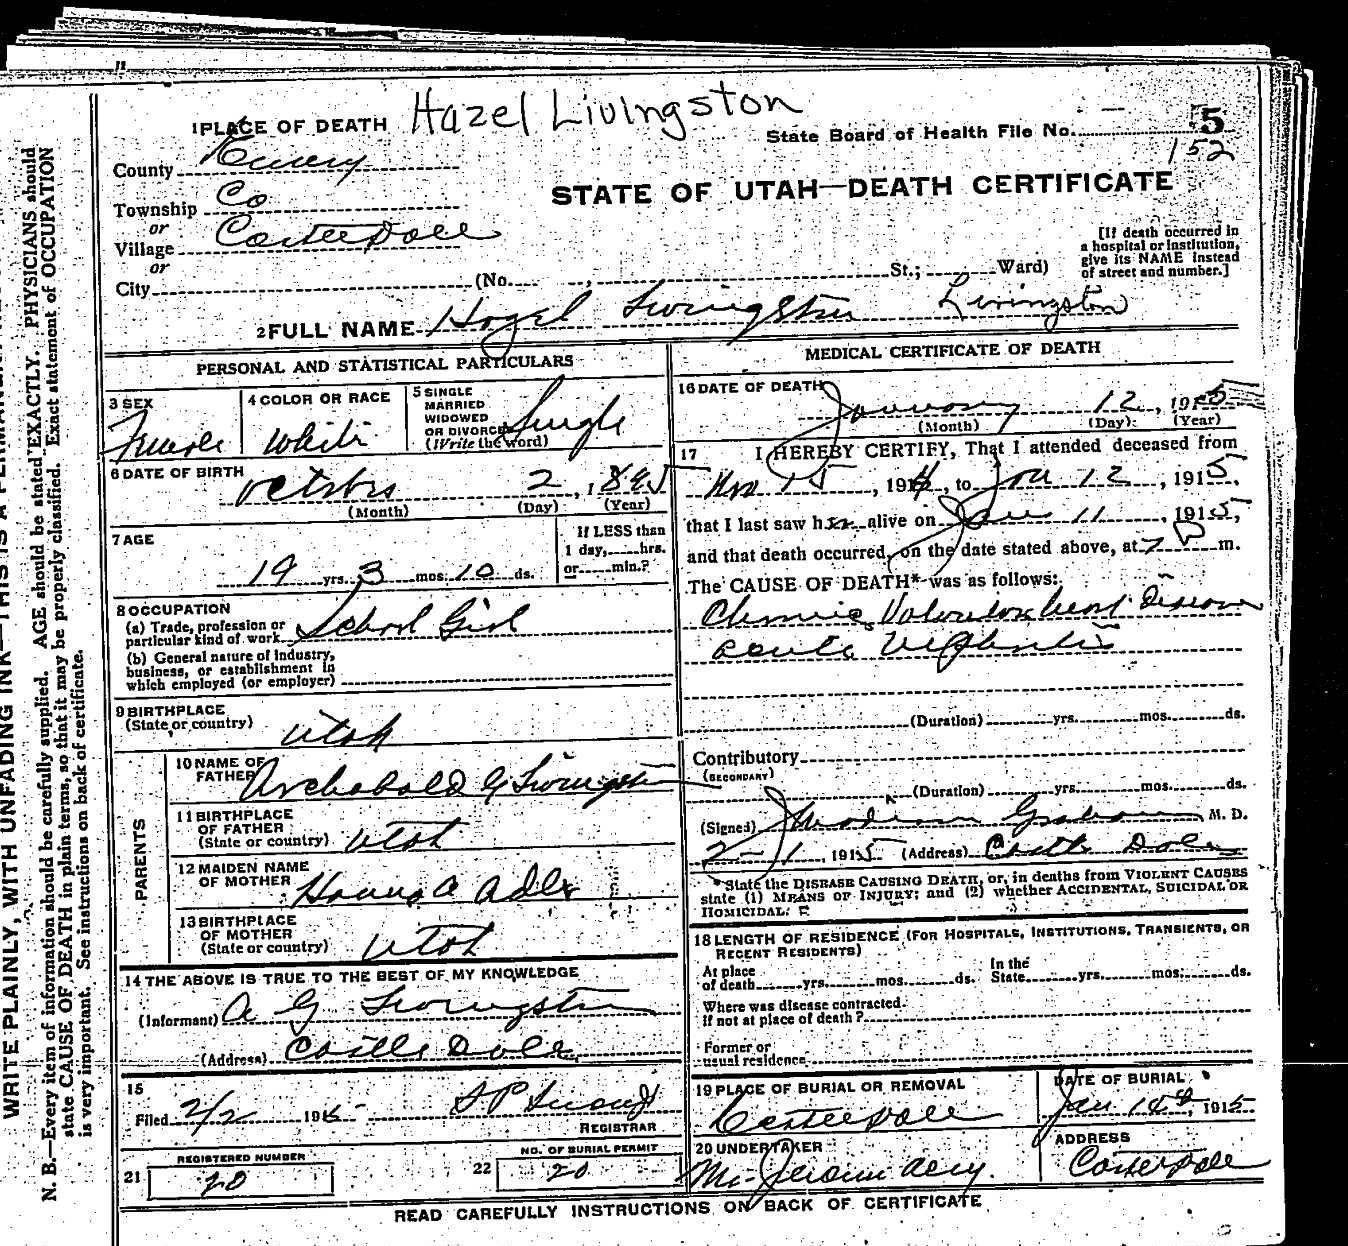 Hazel Livingston
1 PLACE OF DEATH
State Board of Health File No. 5
152
County Emery
Township Co
or
Village Castle Dale
or
City (No. , St.; Ward)
STATE OF UTAH—DEATH CERTIFICATE
[If death occurred in
a hospital or institution,
give its NAME instead
of street and number.]
2 FULL NAME Hazel Livingston Livingston
PERSONAL AND STATISTICAL PARTICULARS
3 SEX
Female
4 COLOR OR RACE
White
5 SINGLE
MARRIED
WIDOWED
OR DIVORCED
(Write the word)
Single
6 DATE OF BIRTH
October 2, 1895
(Month) (Day) (Year)
7 AGE
19 yrs. 3 mos. 10 ds.
If LESS than
1 day, hrs.
or min.?
8 OCCUPATION
(a) Trade, profession or
particular kind of work School Girl
(b) General nature of industry,
business, or establishment in
which employed (or employer)
9 BIRTHPLACE
(State or country) Utah
PARENTS
10 NAME OF
FATHER Archabald G Livingston
11 BIRTHPLACE
OF FATHER
(State or country) Utah
12 MAIDEN NAME
OF MOTHER Hanna A Adler
13 BIRTHPLACE
OF MOTHER
(State or country) Utah
14 THE ABOVE IS TRUE TO THE BEST OF MY KNOWLEDGE
(Informant) A G Livingston
(Address) Castle Dale
15
Filed 2/2 1915
REGISTRAR
21 REGISTERED NUMBER
20
22 NO. OF BURIAL PERMIT
20
MEDICAL CERTIFICATE OF DEATH
16 DATE OF DEATH
January 12, 1915
(Month) (Day) (Year)
17 I HEREBY CERTIFY, That I attended deceased from
Nov 15, 1914, to Jan 12, 1915,
that I last saw her alive on Jan 11, 1915,
and that death occurred, on the date stated above, at 7 P m.
The CAUSE OF DEATH* was as follows:
Chronic Valvular heart Disease
acute Nephritis
(Duration) yrs. mos. ds.
Contributory
(SECONDARY)
(Duration) yrs. mos. ds.
(Signed) Graham M. D.
2-1, 1915 (Address) Castle Dale
* State the DISEASE CAUSING DEATH, or, in deaths from VIOLENT CAUSES
state (1) MEANS OF INJURY; and (2) whether ACCIDENTAL, SUICIDAL OR
HOMICIDAL.
18 LENGTH OF RESIDENCE (FOR HOSPITALS, INSTITUTIONS, TRANSIENTS, OR
RECENT RESIDENTS)
At place
of death yrs. mos. ds.
In the
State yrs. mos. ds.
Where was disease contracted
if not at place of death?
Former or
usual residence
19 PLACE OF BURIAL OR REMOVAL
Castle Dale
DATE OF BURIAL
Jan 14th, 1915
20 UNDERTAKER
ADDRESS
Castle Dale
READ CAREFULLY INSTRUCTIONS ON BACK OF CERTIFICATE
N. B.—Every item of information should be carefully supplied. AGE should be stated EXACTLY. PHYSICIANS should
state CAUSE OF DEATH in plain terms, so that it may be properly classified. Exact statement of OCCUPATION
is very important. See instructions on back of certificate.
WRITE PLAINLY, WITH UNFADING INK—THIS IS A